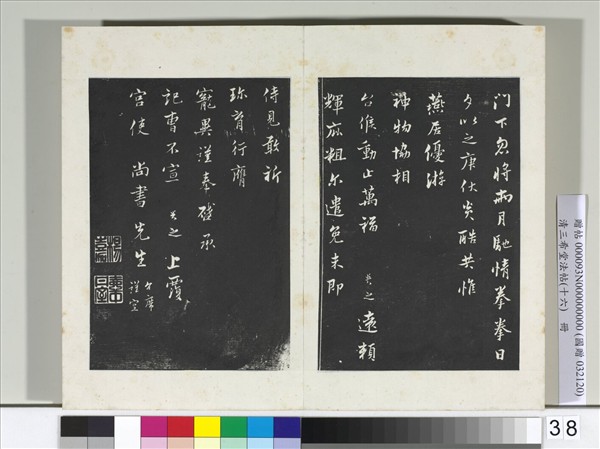 門下忽將兩月馳情拳拳日
夕以之庚伏炎酷共惟
燕居優游
神物協相
台候動止萬福 其之遠賴
輝庇粗尔遣免未即
侍見敢祈
珍育行膺
寵異謹奉啓承
記曹不宣 其之上覆
宮使尚書先生
台席
謹空
贈帖 000093N000000000 (國贈 032120)
清三希堂法帖(十六) 冊
38